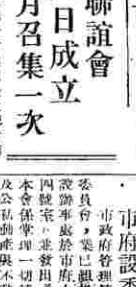 聯誼會
日成立
月召集一次
市府設委
市政府管理
委員會，業已組
設辦事處於市府
四號室，並發出
本會係掌理一切
及公私動產與不動